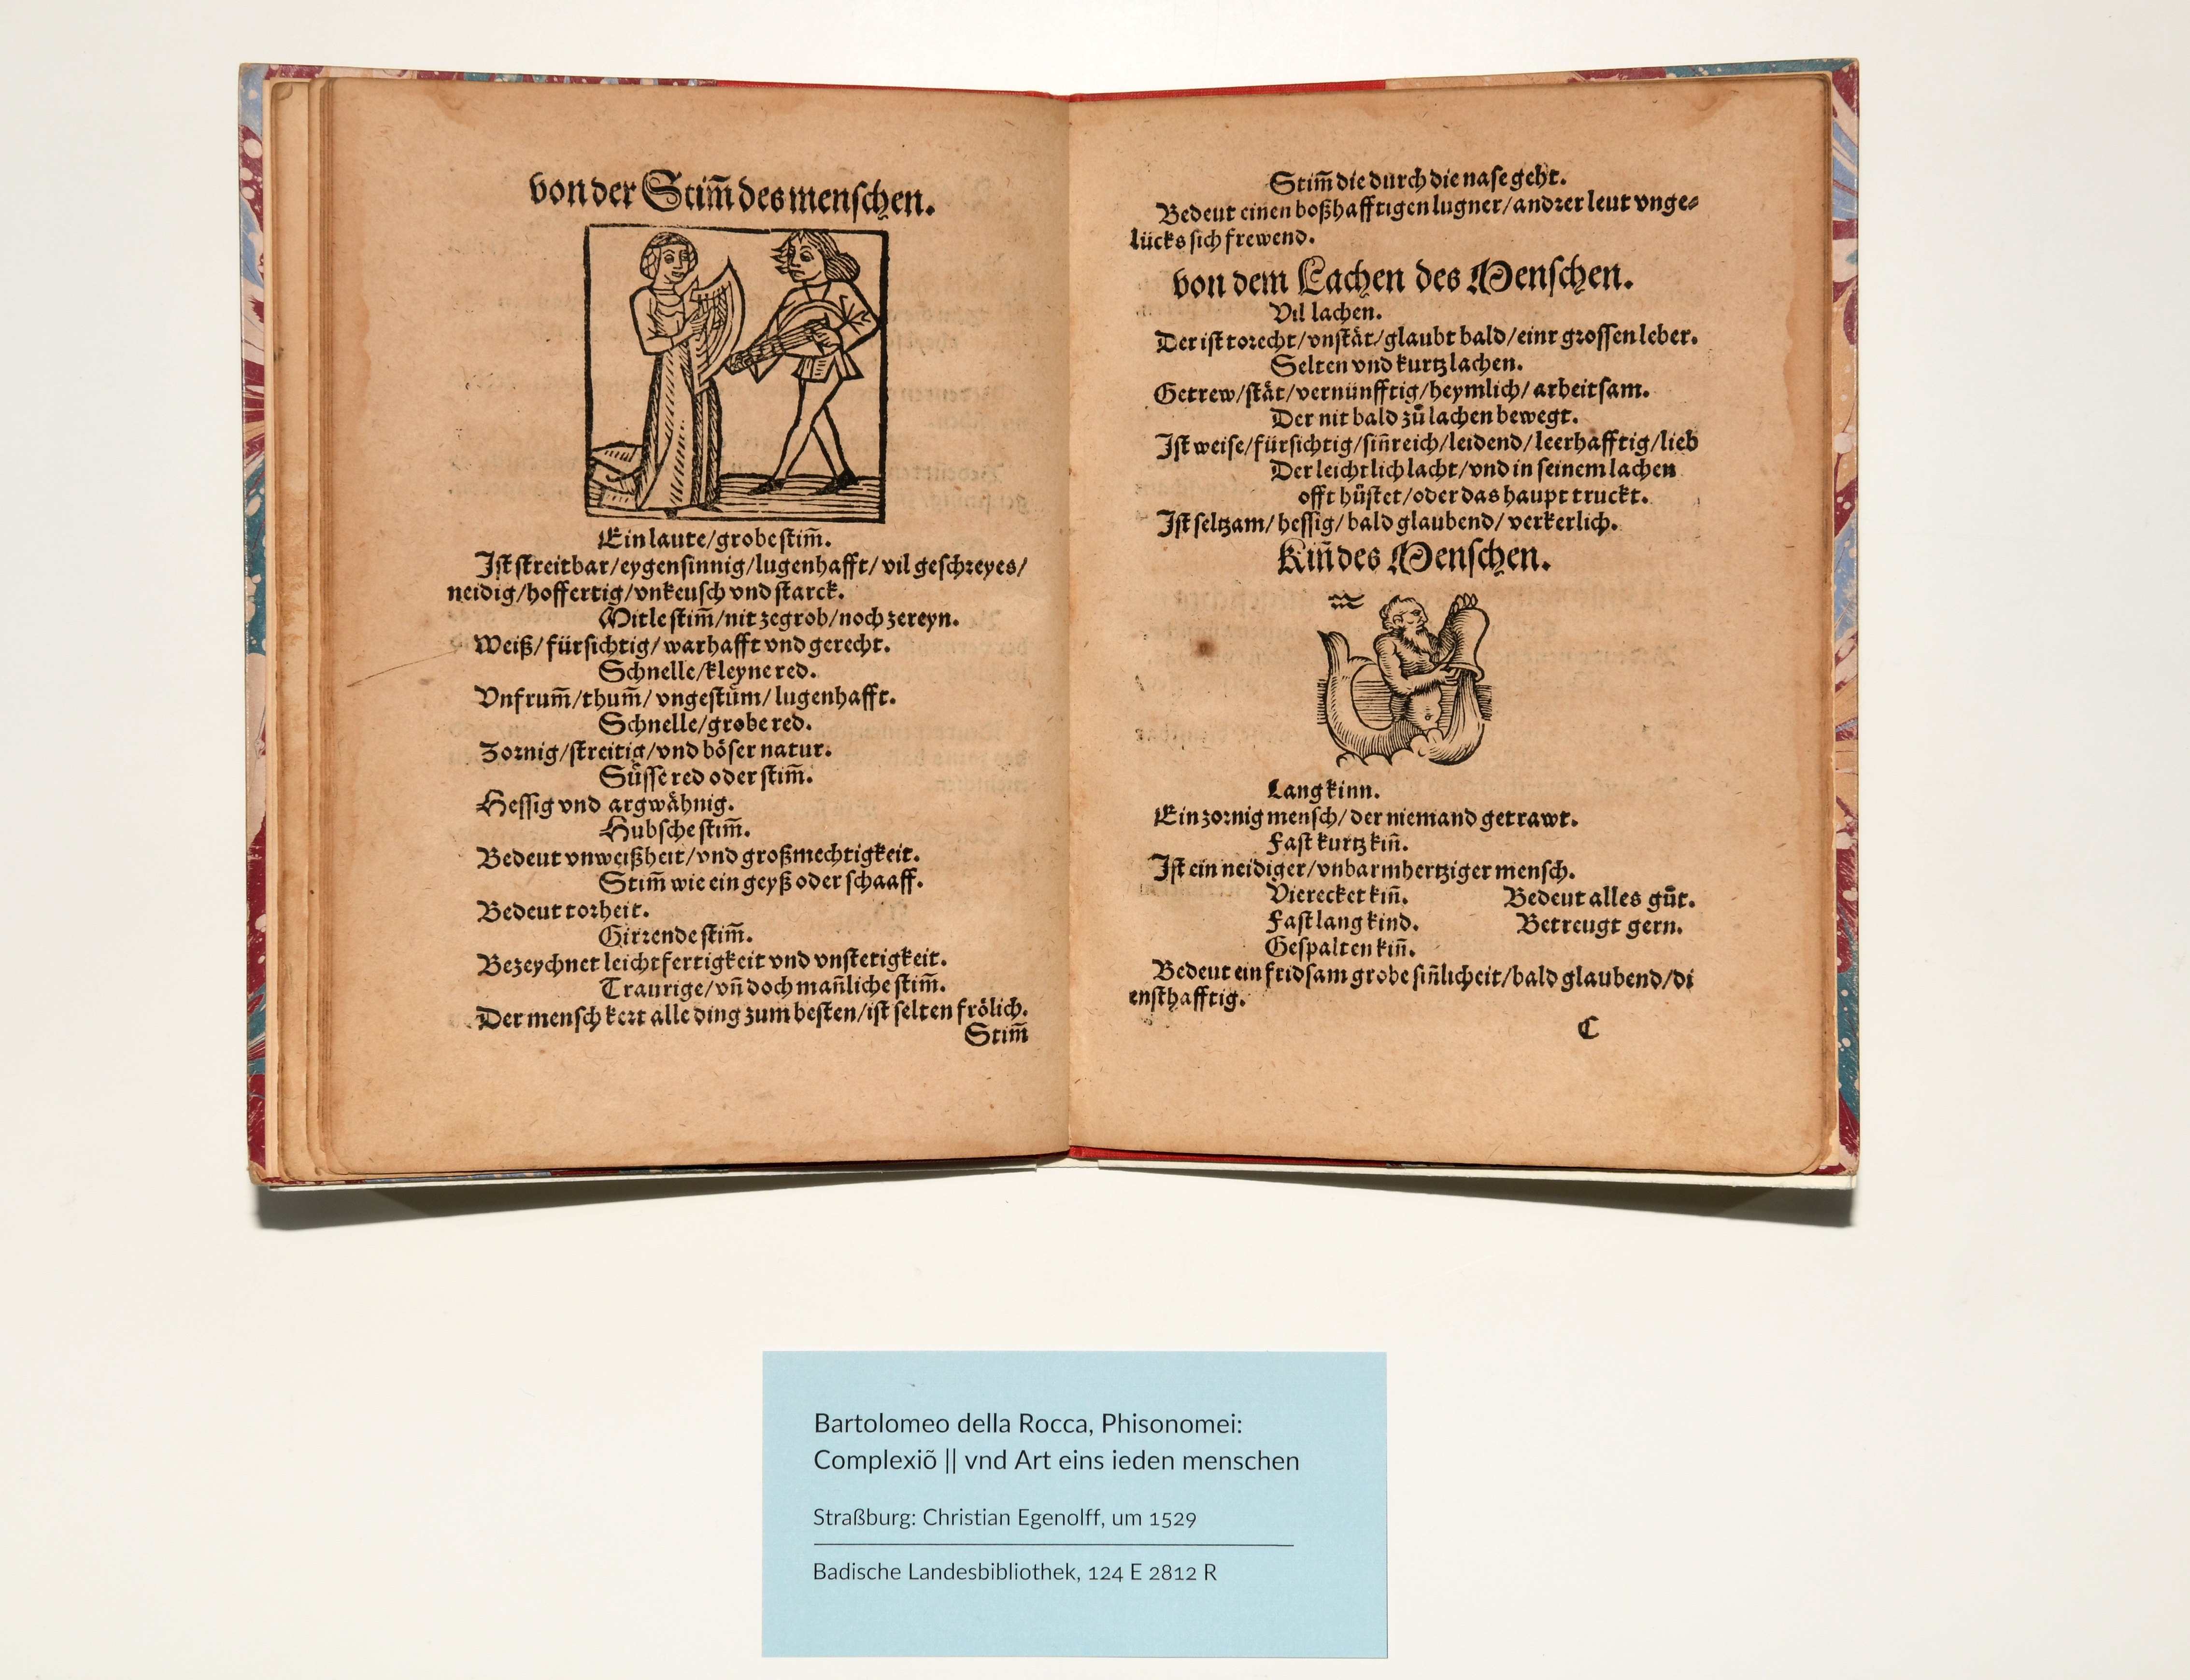 von der Stim̄ des menschen.
Ein laute/grobe stim̄.
Ist streitbar/eygensinnig/lugenhafft/vil geschreyes/
neidig/hoffertig/vnkeusch vnd starck.
Mitle stim̄/nit ze grob/noch ze reyn.
Weiß/fürsichtig/warhafft vnd gerecht.
Schnelle/kleyne red.
Vnfrum̄/thum̄/vngestům/lugenhafft.
Schnelle/grobe red.
Zornig/streitig/vnd böser natur.
Süsse red oder stim̄.
Hessig vnd argwähnig.
Hubsche stim̄.
Bedeut vnweißheit/vnd großmechtigkeit.
Stim̄ wie ein geyß oder schaaff.
Bedeut torheit.
Girrende stim̄.
Bezeychnet leichtfertigkeit vnd vnstetigkeit.
Traurige/vn̄ doch man̄liche stim̄.
Der mensch kert alle ding zum besten/ist selten frölich.
Stim̄
Stim̄ die durch die nase geht.
Bedeut einen boßhafftigen lugner/andrer leut vnge⸗
lücks sich frewend.
von dem Lachen des Menschen.
Vil lachen.
Der ist torecht/vnstät/glaubt bald/einr grossen leber.
Selten vnd kurtz lachen.
Getrew/stät/vernünfftig/heymlich/arbeitsam.
Der nit bald zů lachen bewegt.
Ist weise/fürsichtig/sin̄reich/leidend/leerhafftig/lieb
Der leichtlich lacht/vnd in seinem lachen
offt hůstet/oder das haupt truckt.
Ist seltzam/hessig/bald glaubend/verkerlich.
Kin̄ des Menschen.
♒
Lang kinn.
Ein zornig mensch/der niemand getrawt.
Fast kurtz kin̄.
Ist ein neidiger/vnbarmhertziger mensch.
Vierecket kin̄. Bedeut alles gůt.
Fast lang kind. Betreugt gern.
Gespalten kin̄.
Bedeut ein fridsam grobe sin̄licheit/bald glaubend/di
ensthafftig.
C
Bartolomeo della Rocca, Phisonomei:
Complexiõ || vnd Art eins ieden menschen
Straßburg: Christian Egenolff, um 1529
Badische Landesbibliothek, 124 E 2812 R